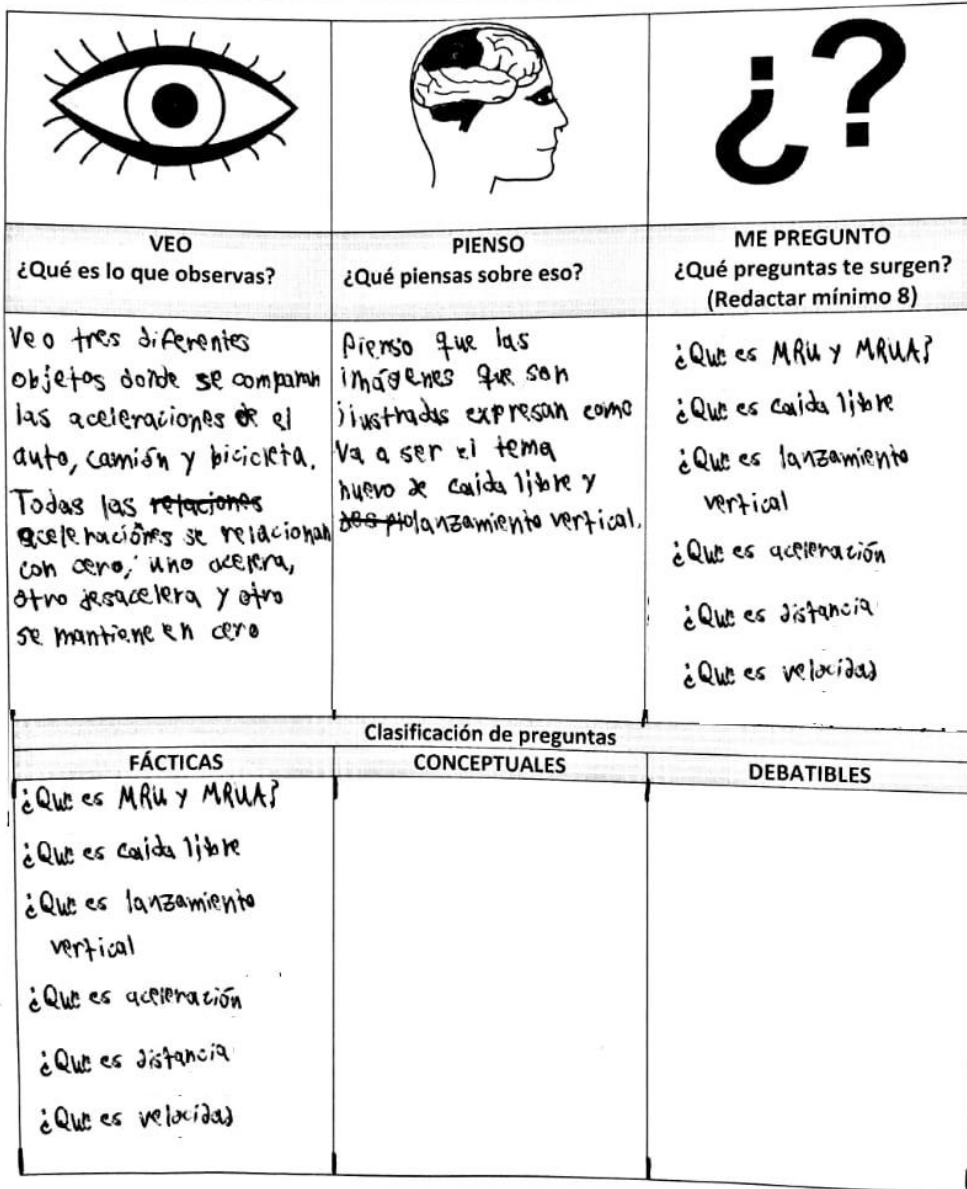 ¿?
VEO
¿Qué es lo que observas?
PIENSO
¿Qué piensas sobre eso?
ME PREGUNTO
¿Qué preguntas te surgen?
(Redactar mínimo 8)
Veo tres diferentes
objetos donde se comparan
las aceleraciones de el
auto, camión y bicicleta.
Todas las relaciones
aceleraciones se relacionan
con cero, uno acelera,
otro desacelera y otro
se mantiene en cero
Pienso que las
imágenes que son
ilustradas expresan como
va a ser el tema
nuevo de caida libre y
lanzamiento vertical.
¿Que es MRU y MRUA?
¿Que es caida libre
¿Que es lanzamiento
vertical
¿Que es aceleración
¿Que es distancia
¿Que es velocidad
Clasificación de preguntas
FÁCTICAS
CONCEPTUALES
DEBATIBLES
¿Que es MRU y MRUA?
¿Que es caida libre
¿Que es lanzamiento
vertical
¿Que es aceleración
¿Que es distancia
¿Que es velocidad